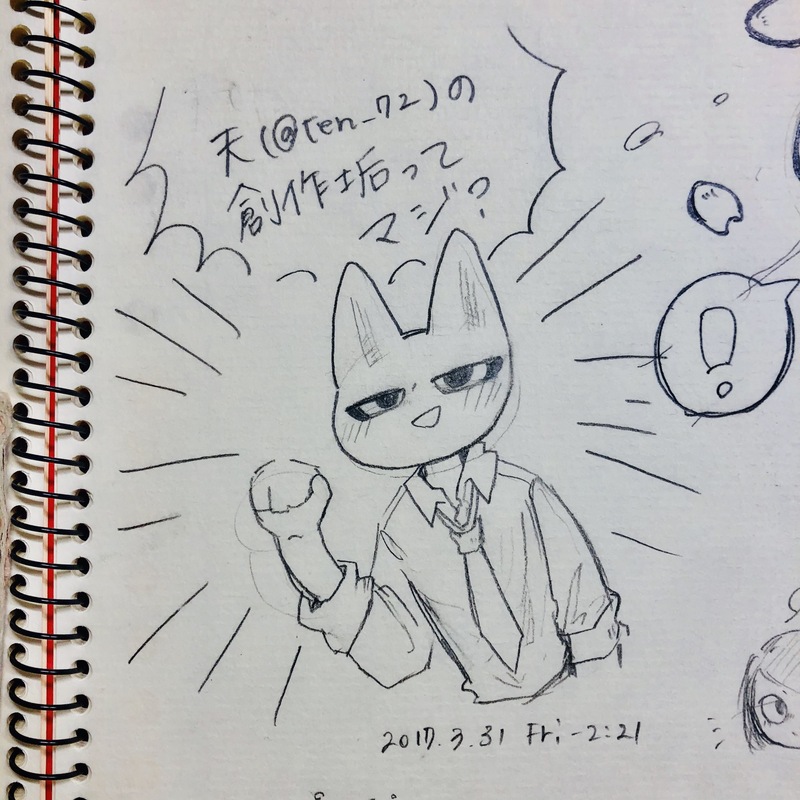 天(@ten_72)の
創作垢って
マジ?
!
2017.3.31 Fri-2:21